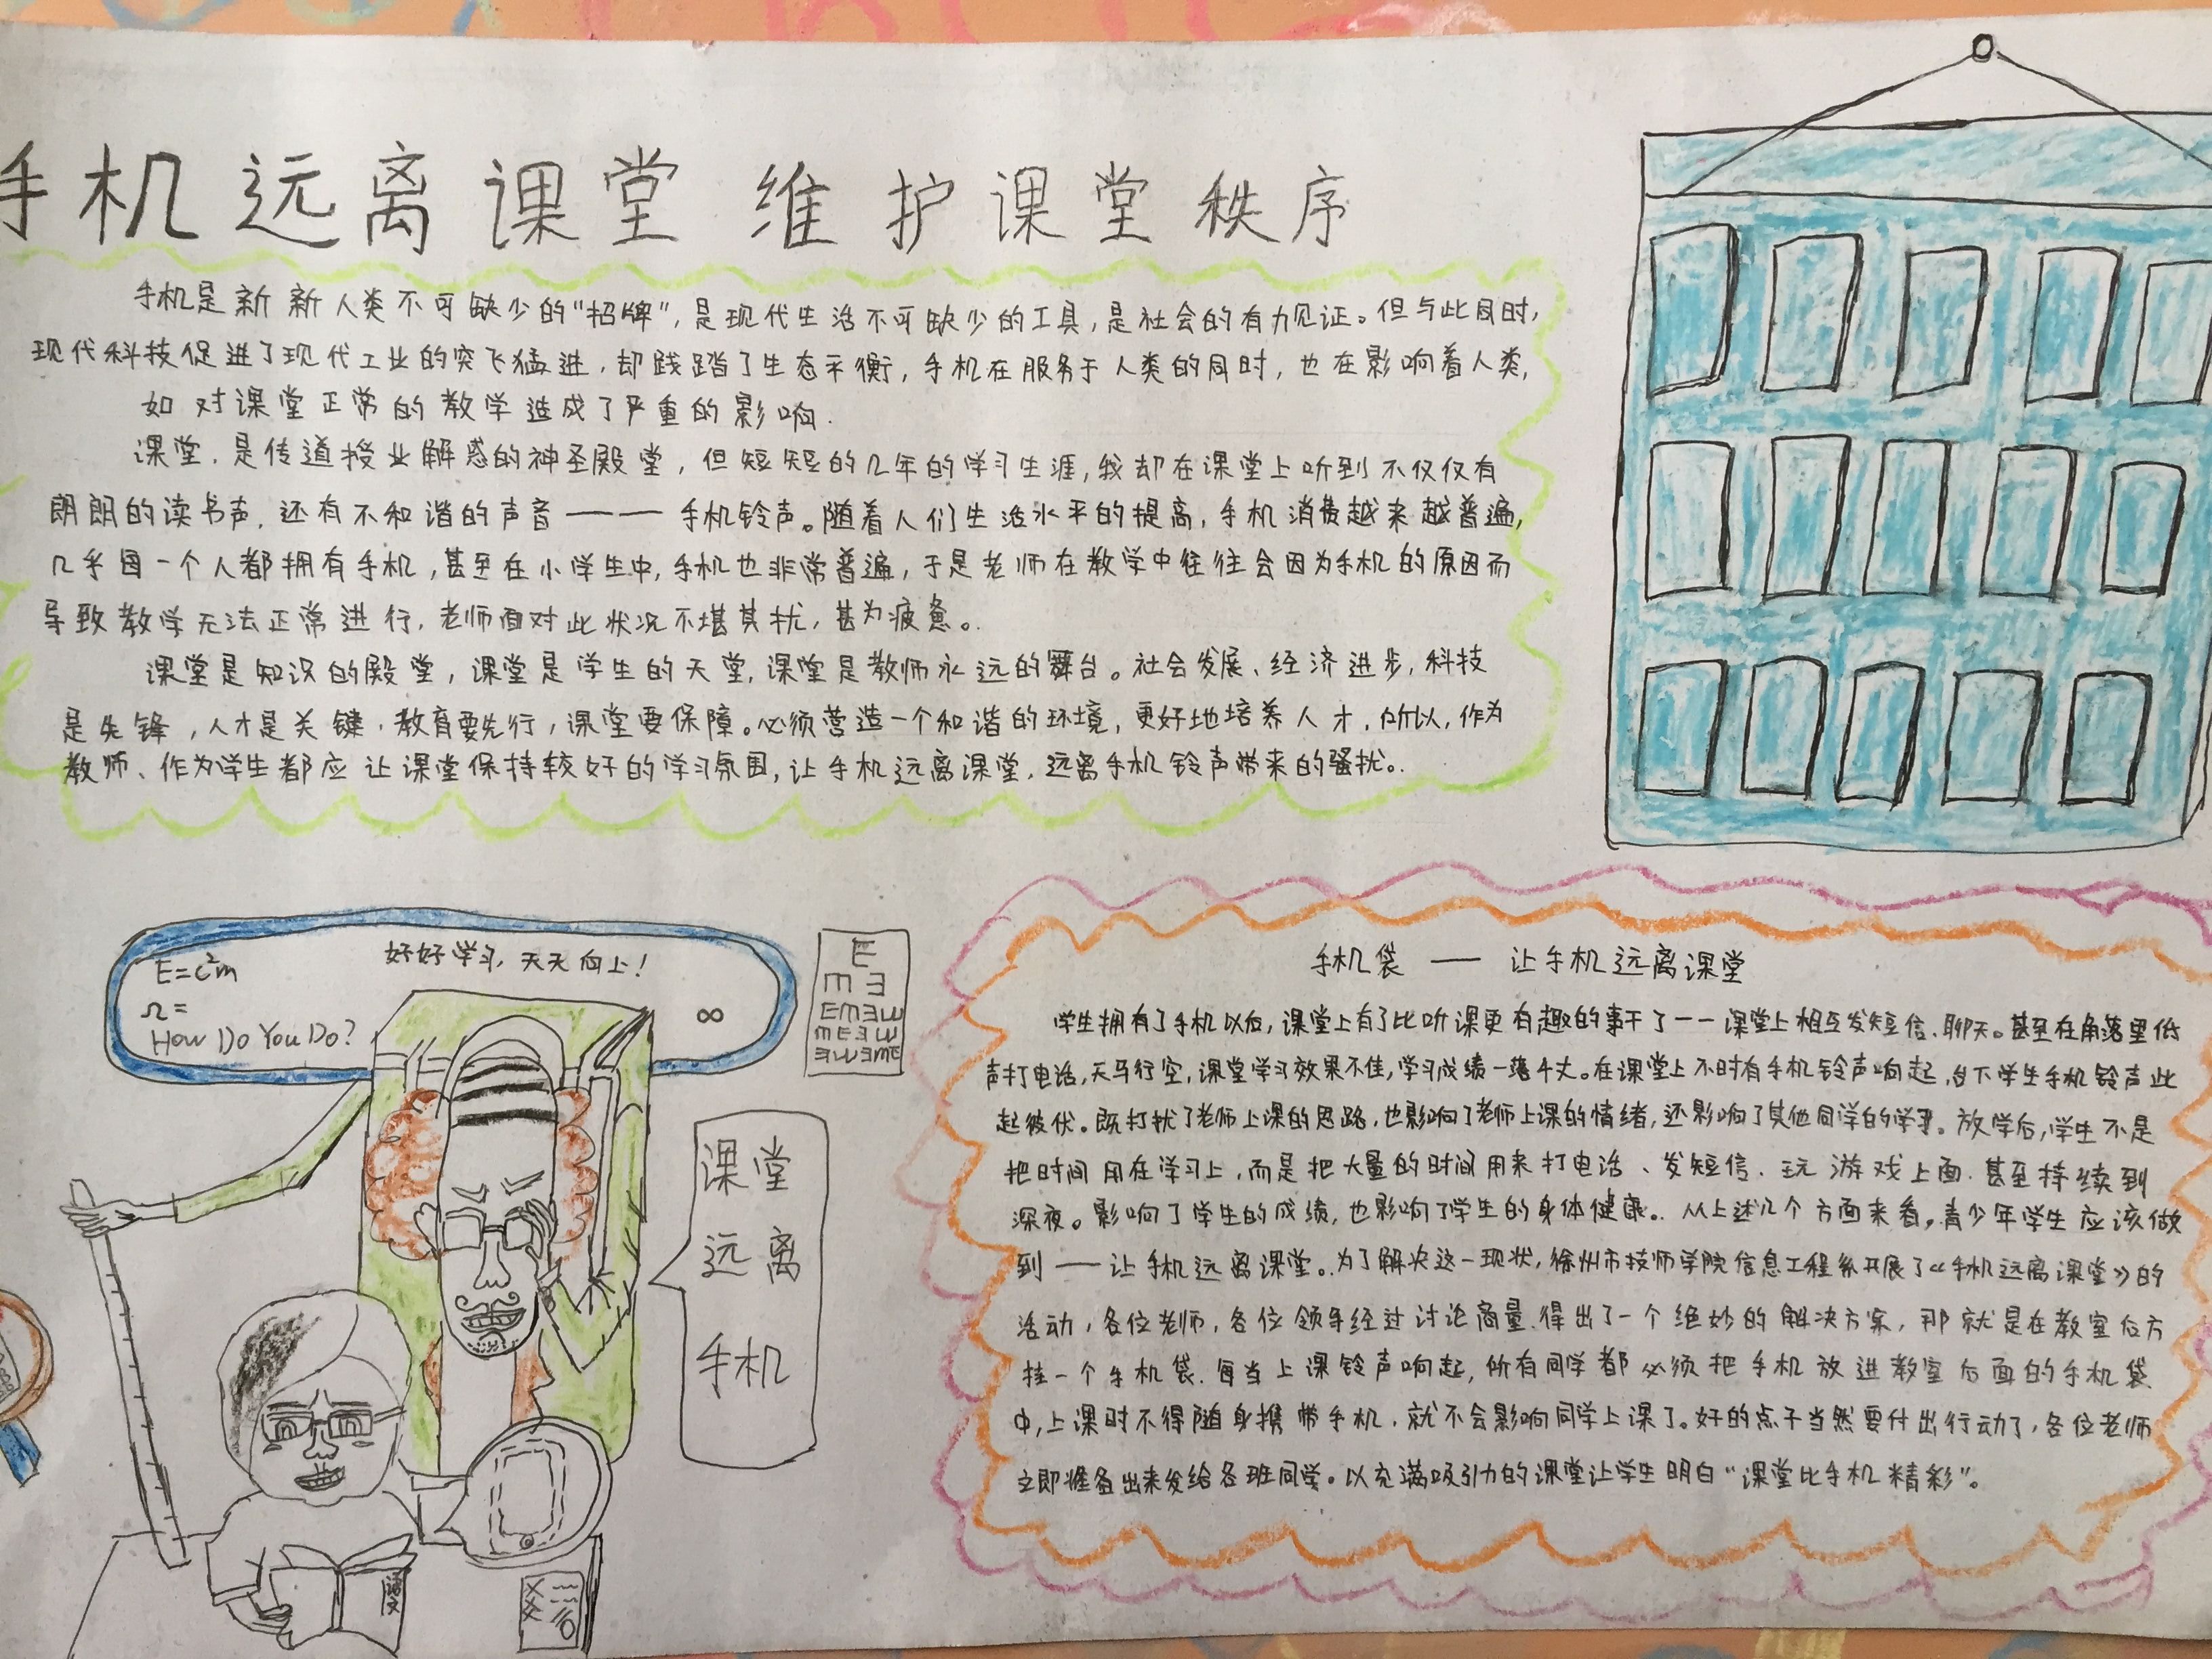 手机远离课堂 维护课堂秩序
手机是新新人类不可缺少的“招牌”,是现代生活不可缺少的工具,是社会的有力见证。但与此同时,
现代科技促进了现代工业的突飞猛进,却践踏了生态平衡,手机在服务于人类的同时,也在影响着人类,
如对课堂正常的教学造成了严重的影响.
课堂,是传道授业解惑的神圣殿堂,但短短的几年的学习生涯,我却在课堂上听到不仅仅有
朗朗的读书声,还有不和谐的声音———手机铃声。随着人们生活水平的提高,手机消费越来越普遍,
几乎每一个人都拥有手机,甚至在小学生中,手机也非常普遍,于是老师在教学中往往会因为手机的原因而
导致教学无法正常进行,老师面对此状况不堪其扰,甚为疲惫。
课堂是知识的殿堂,课堂是学生的天堂,课堂是教师永远的舞台。社会发展、经济进步,科技
是先锋,人才是关键,教育要先行,课堂要保障。必须营造一个和谐的环境,更好地培养人才,所以,作为
教师、作为学生都应让课堂保持较好的学习氛围,让手机远离课堂,远离手机铃声带来的骚扰。
好好学习,天天向上!
E=c²m
Ω=
∞
How Do You Do?
E
M E
E M E W
M E E W
E W E M E
课堂
远离
手机
手机袋 —— 让手机远离课堂
学生拥有了手机以后,课堂上有了比听课更有趣的事干了——课堂上相互发短信、聊天。甚至在角落里低
声打电话,天马行空,课堂学习效果不佳,学习成绩一落千丈。在课堂上不时有手机铃声响起,台下学生手机铃声此
起彼伏。既打扰了老师上课的思路,也影响了老师上课的情绪,还影响了其他同学的学习。放学后,学生不是
把时间用在学习上,而是把大量的时间用来打电话、发短信、玩游戏上面.甚至持续到
深夜。影响了学生的成绩,也影响了学生的身体健康。从上述几个方面来看,青少年学生应该做
到——让手机远离课堂。为了解决这一现状,徐州市技师学院信息工程系开展了《手机远离课堂》的
活动,各位老师,各位领导经过讨论商量.得出了一个绝妙的解决方案,那就是在教室后方
挂一个手机袋.每当上课铃声响起,所有同学都必须把手机放进教室后面的手机袋
中,上课时不得随身携带手机,就不会影响同学上课了。好的点子当然要付出行动了,各位老师
立即准备出来发给各班同学。以充满吸引力的课堂让学生明白“课堂比手机精彩”。